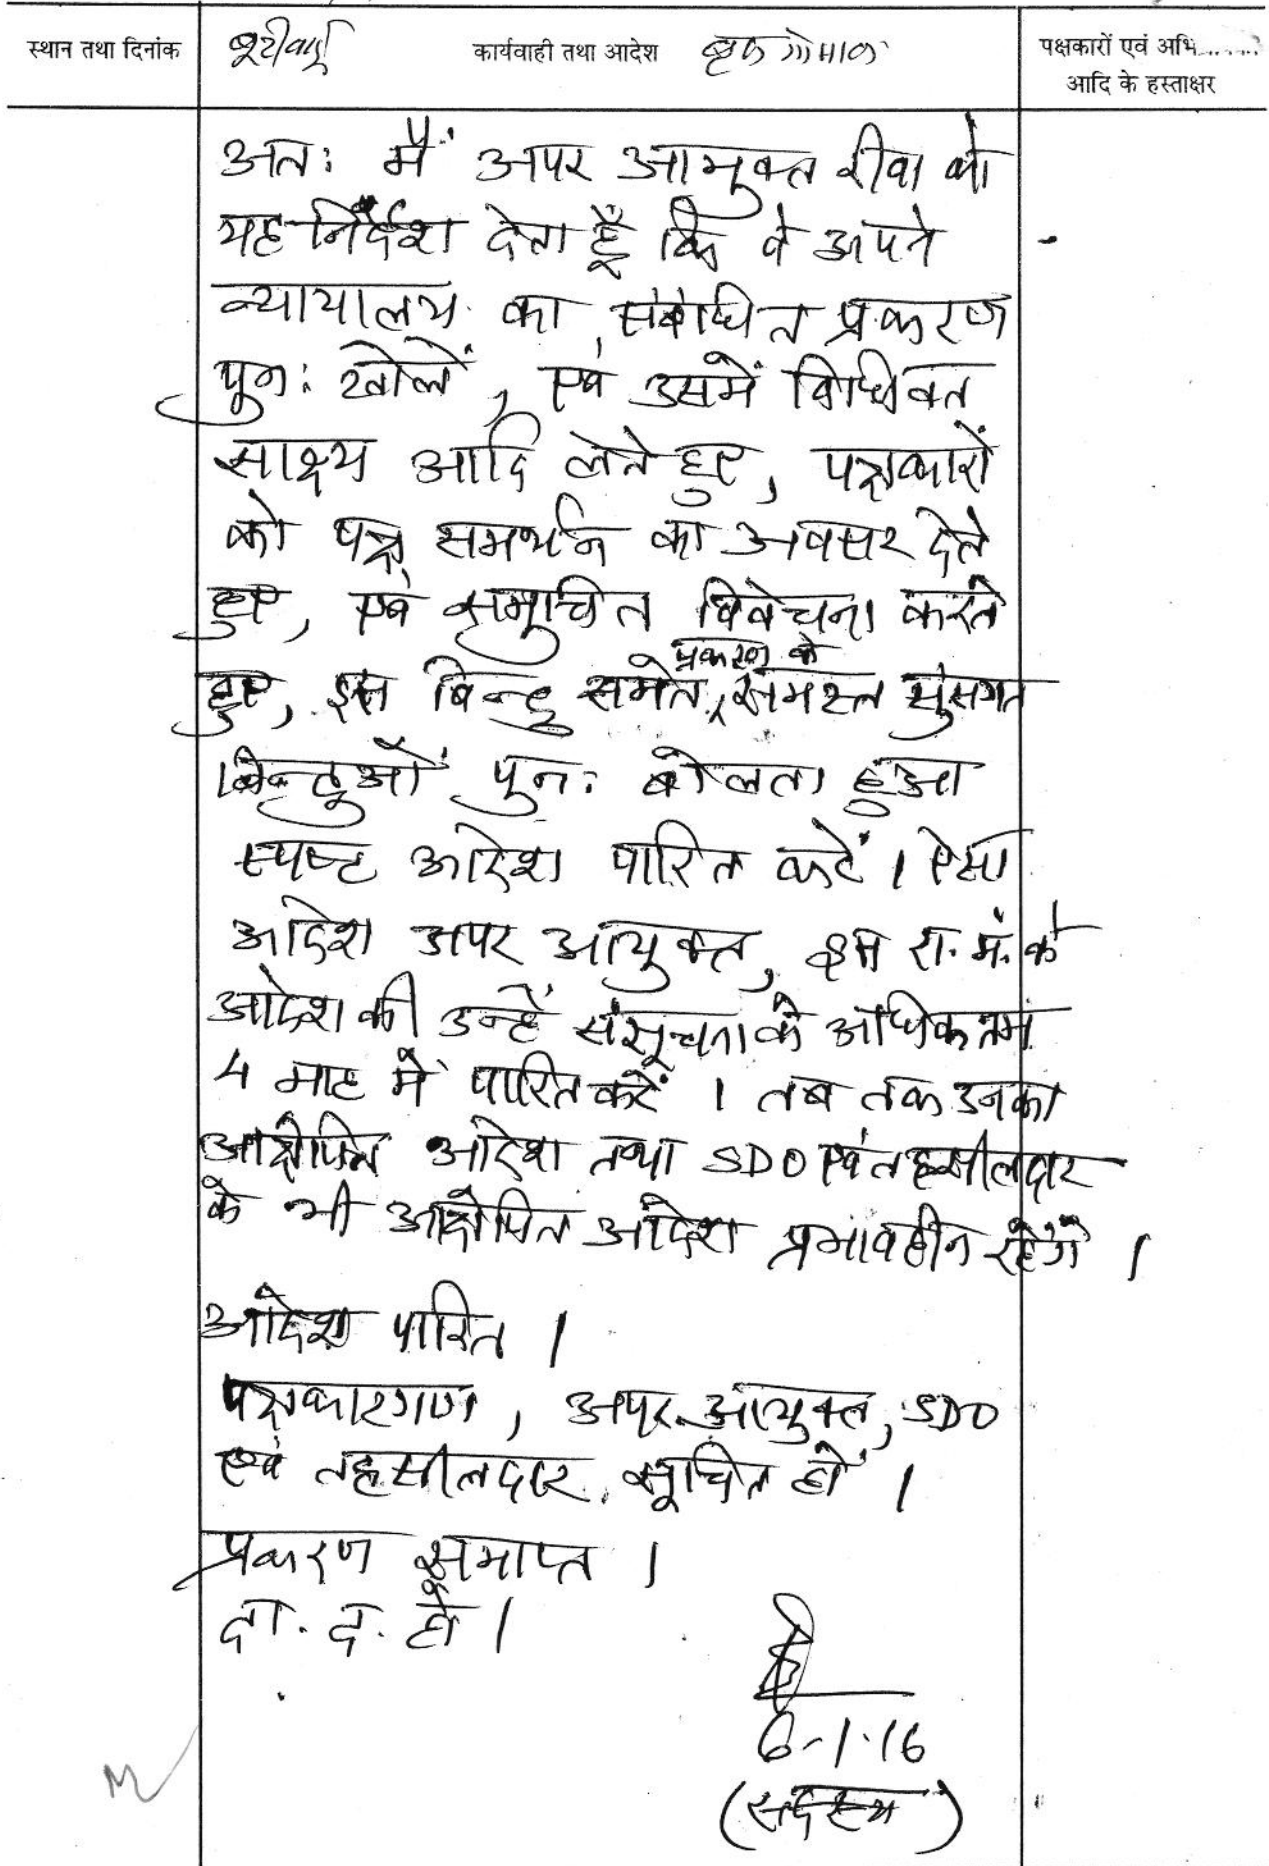 स्थान तथा दिनांक कार्यवाही तथा आदेश पक्षकारों एवं अभि
आदि के हस्ताक्षर
अतः मैं अपर आयुक्त रीवा को
यह निर्देश देता हूँ कि वे अपने
न्यायालय का संबंधित प्रकरण
पुनः खोलें, एवं उसमें विधिवत
साक्ष्य आदि लेते हुए, पक्षकारों
को पक्ष समर्थन का अवसर देते
हुए, एवं समुचित विवेचना करते
प्रकरण के
हुए, इस बिन्दु समेत, समस्त सुसंगत
बिन्दुओं पुनः बोलता हुआ
स्पष्ट आदेश पारित करें । ऐसा
आदेश अपर आयुक्त, इस रा. मं. के
आदेश की उन्हें संसूचना के अधिकतम
4 माह में पारित करें । तब तक उनका
आक्षेपित आदेश तथा SDO एवं तहसीलदार
के भी आक्षेपित आदेश प्रभावहीन रहेंगे ।
आदेश पारित ।
पक्षकारगण, अपर आयुक्त, SDO
एवं तहसीलदार सूचित हों ।
प्रकरण समाप्त ।
दा. द. हो ।
6-1-16
(सदस्य)